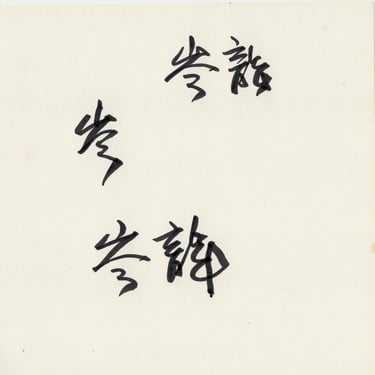 岑龍
岑
岑龍